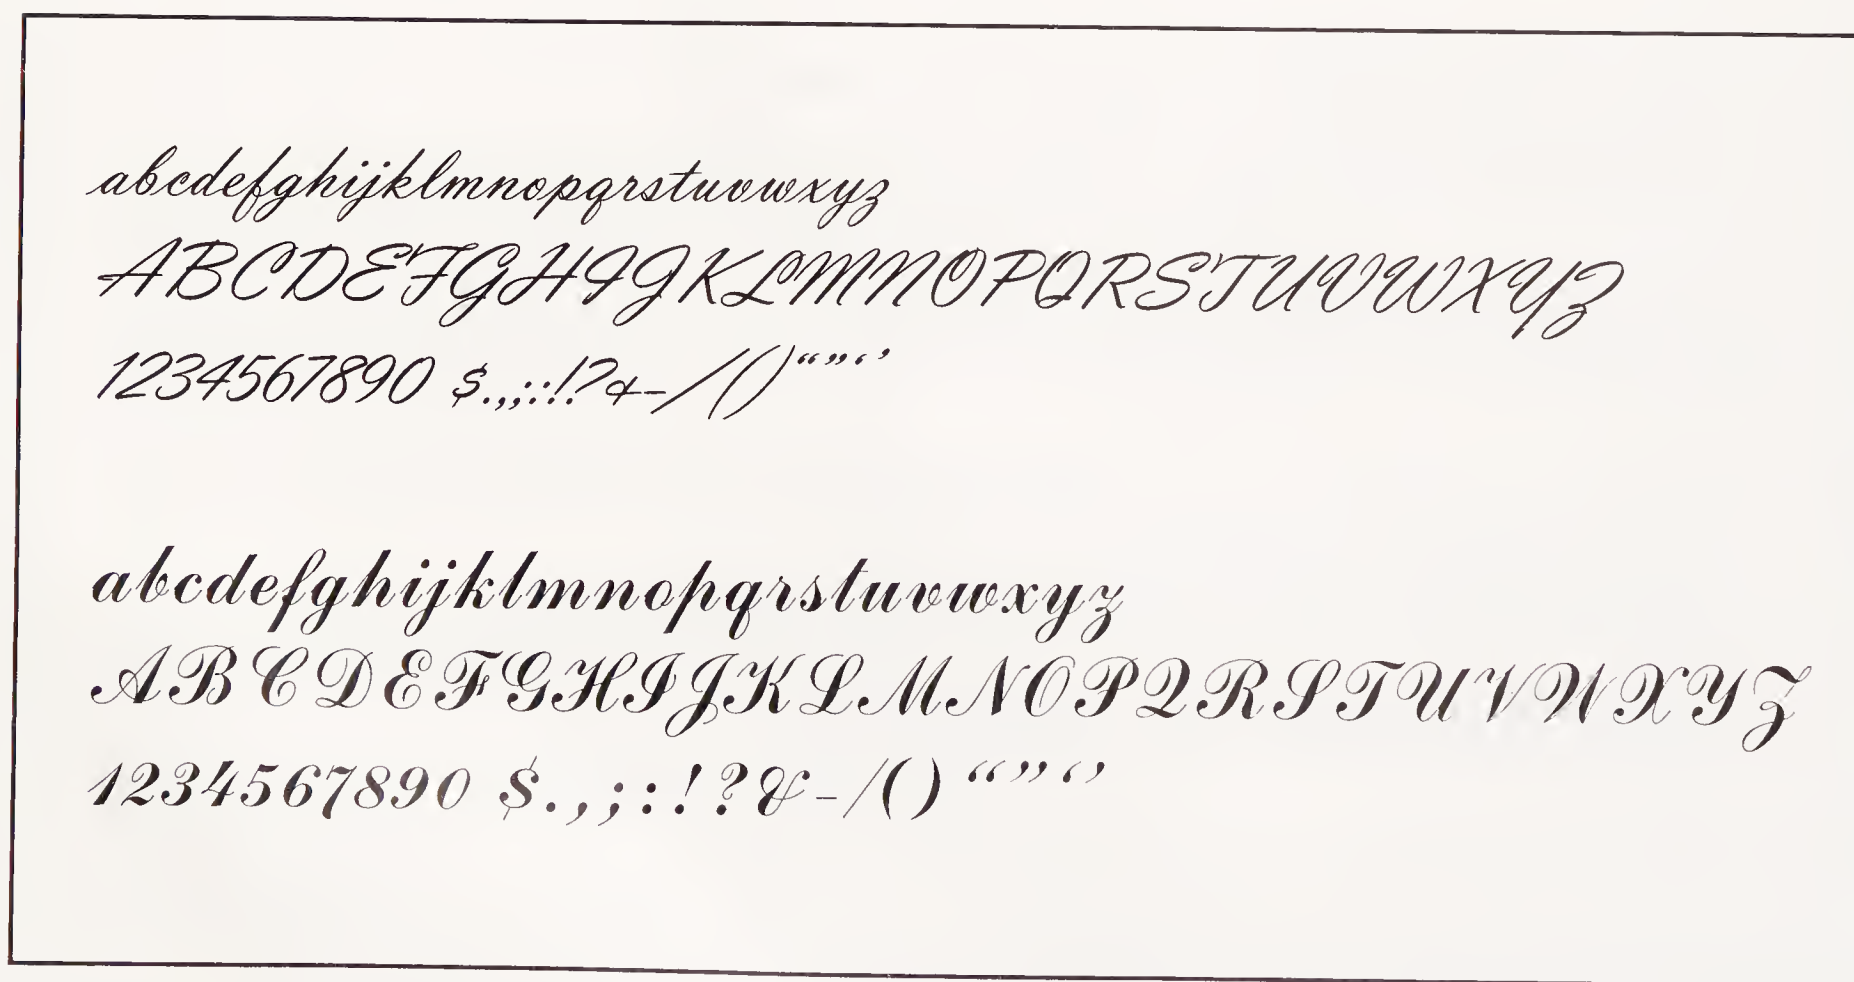 abcdefghijklmnopqrstuvwxyz
ABCDEFGHIJKLMNOPQRSTUVWXYZ
1234567890 $.,;:!?&-/()“”‘’
abcdefghijklmnopqrstuvwxyz
ABCDEFGHIJKLMNOPQRSTUVWXYZ
1234567890 $.,;:!?&-/()“”‘’